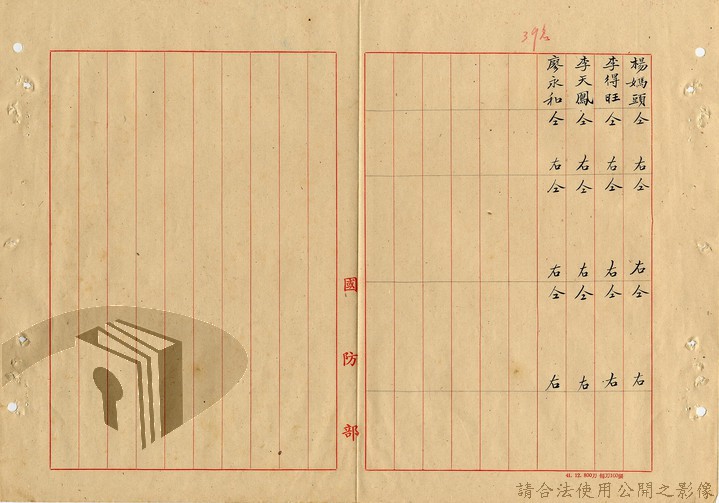 39名
楊媽頭 仝右 仝右 仝右
李得旺 仝右 仝右 仝右
李天鳳 仝右 仝右 仝右
廖永和 仝右 仝右 仝右
國防部
請合法使用公開之影像